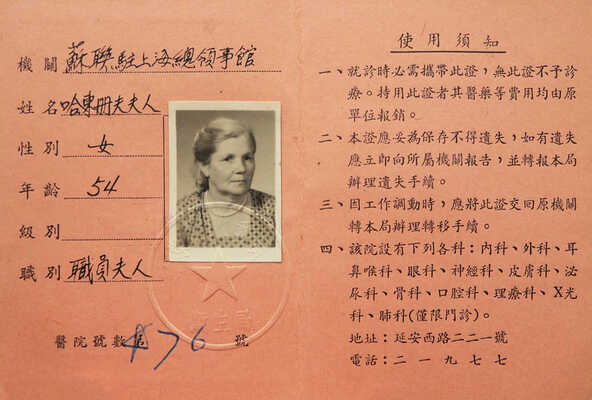 機關 蘇聯駐上海總領事館
姓名 哈東册夫夫人
性別 女
年齡 54
級別
職別 職員夫人
醫院號數 476 號
使用須知
一、就診時必需攜帶此證，無此證不予診
療。持用此證者其醫藥等費用均由原
單位報銷。
二、本證應妥為保存不得遺失，如有遺失
應立即向所屬機關報告，並轉報本局
辦理遺失手續。
三、因工作調動時，應將此證交回原機關
轉本局辦理轉移手續。
四、該院設有下列各科：内科、外科、耳
鼻喉科、眼科、神經科、皮膚科、泌
尿科、骨科、口腔科、理療科、X光
科、肺科(僅限門診)。
地址：延安西路二二一號
電話：二一九七七